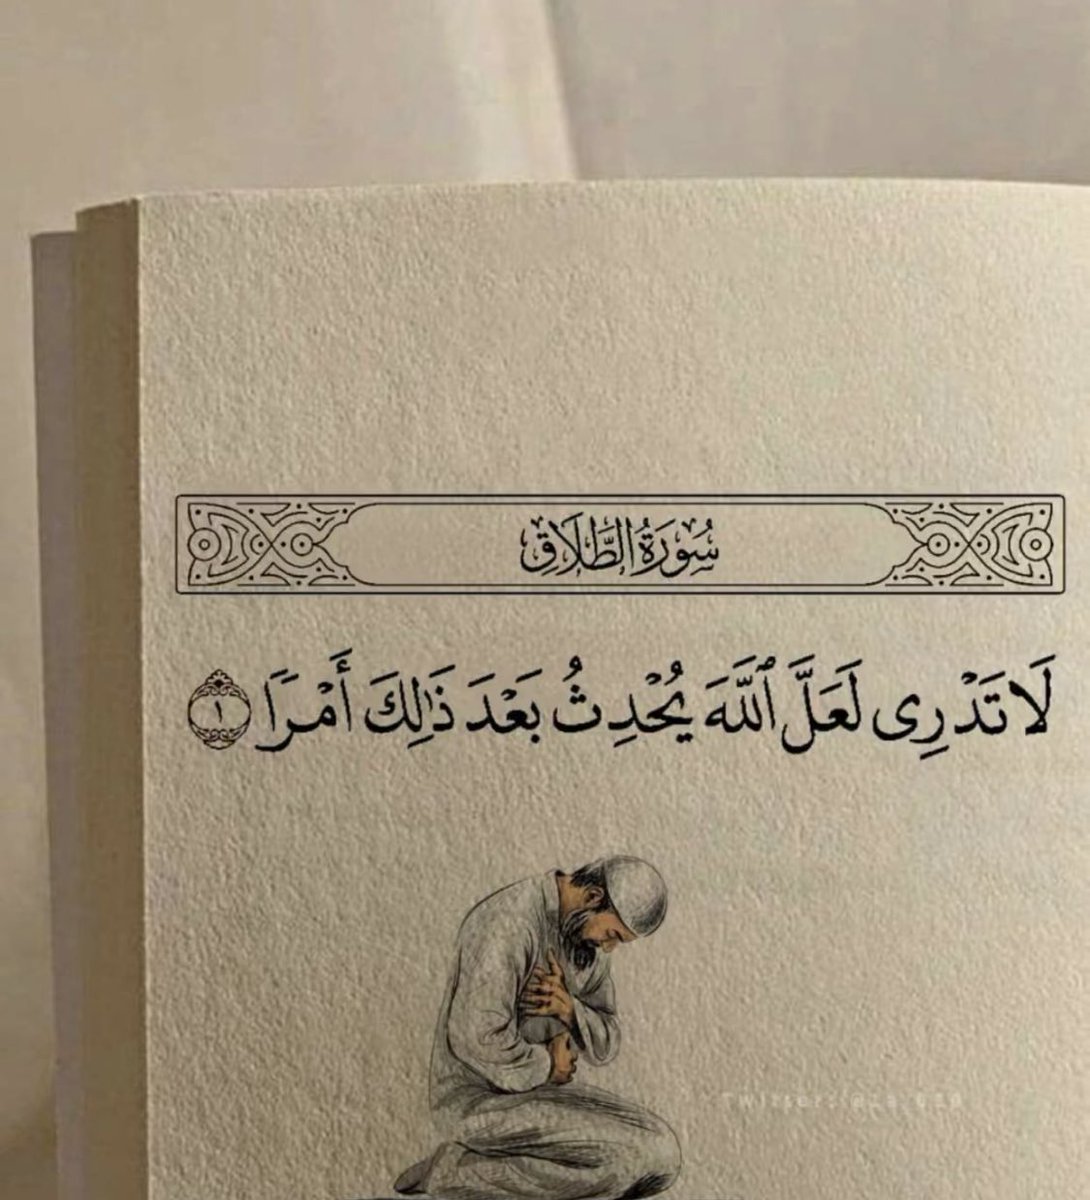 سُورَةُ الطَّلَاقِ
لَا تَدْرِى لَعَلَّ ٱللَّهَ يُحْدِثُ بَعْدَ ذَٰلِكَ أَمْرًا ١